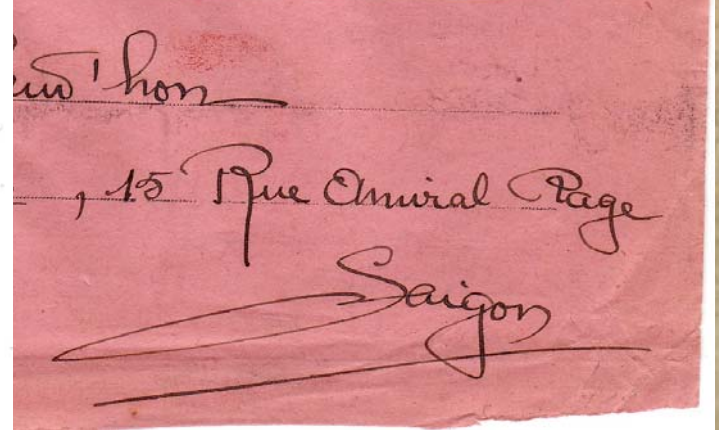 'hon
, 15 Rue Amiral Page
Saigon